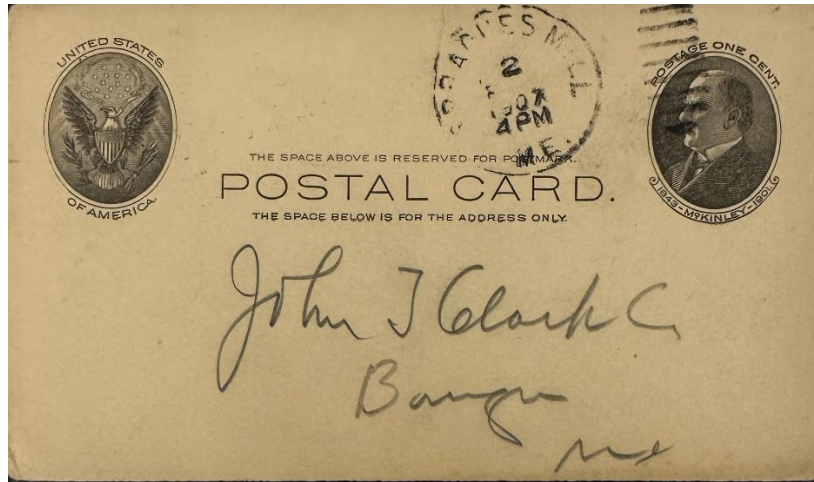 UNITED STATES
OF AMERICA
SPRAGUES MILL
2
1907
4PM
ME.
POSTAGE ONE CENT.
1843-McKINLEY-1901
THE SPACE ABOVE IS RESERVED FOR POSTMARK.
POSTAL CARD.
THE SPACE BELOW IS FOR THE ADDRESS ONLY.
John T Clark C.
Bangor
Me